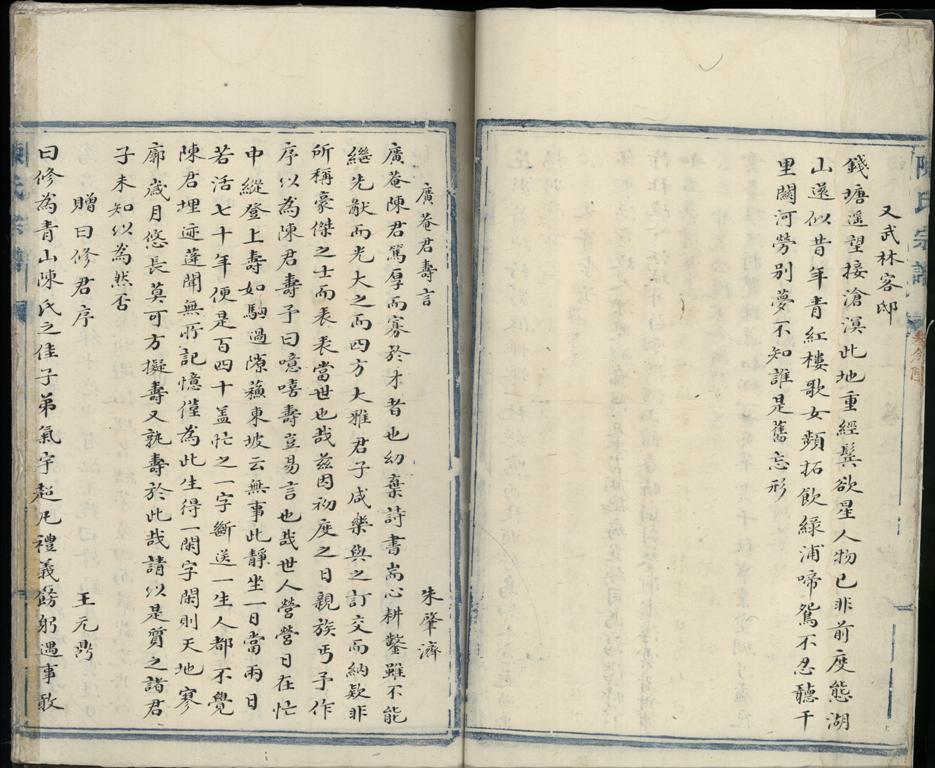 陳氏宗譜
又武林客邸
錢塘遥望接滄溟此地重經鬂欲星人物已非前度態湖
山還似昔年青紅樓歌女頻拓飲緑浦啼鴛不忍聽千
里關河勞別夢不知誰是舊忘形
廣菴君壽言
朱肇濟
廣菴陳君篤厚而寡於才者也幼棄詩書耑心耕鑿雖不能
繼先猷而光大之而四方大雅君子咸樂與之訂交而納欵非
所稱豪傑之士而表表當世也哉兹因初度之日親族丐予作
序以為陳君壽予曰噫嘻壽豈易言也哉世人營營日在忙
中縱登上壽如駒過隙蘓東坡云無事此靜坐一日當兩日
若活七十年便是百四十盖忙之一字斷送一生人都不覺
陳君埋迹蓬閭無所記憶僅為此生得一閑字閑則天地寥
廓歲月悠長莫可方擬壽又孰壽於此哉請以是質之諸君
子未知以為然否
贈曰修君序
王元勛
曰修為青山陳氏之佳子弟氣宇超凡禮義飭躬遇事敢
陳氏宗譜